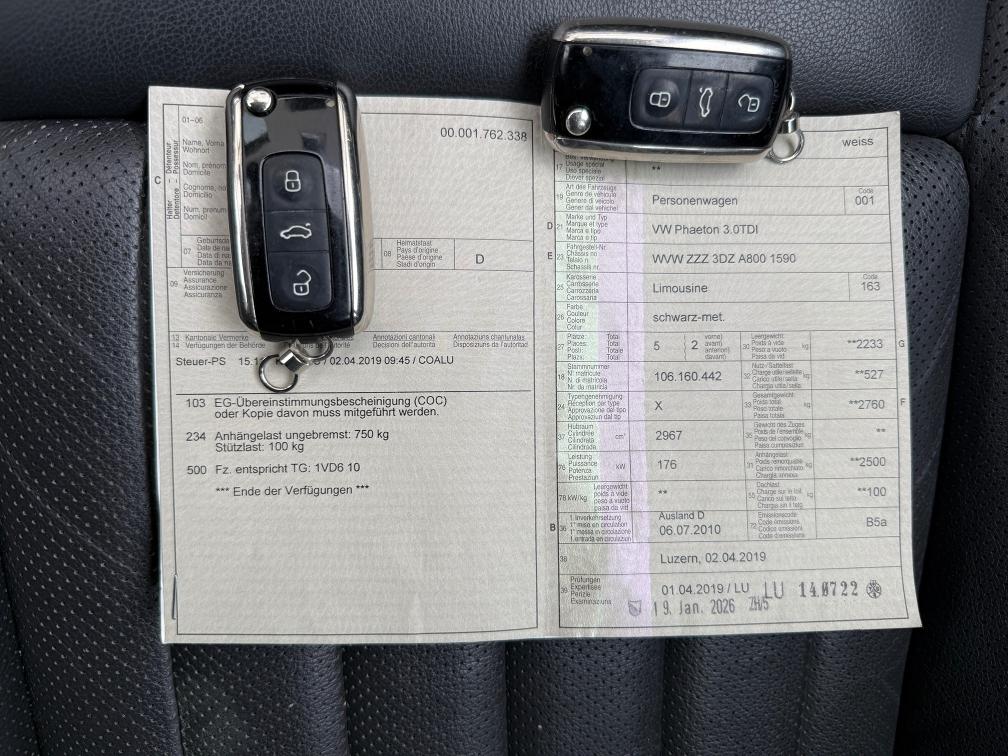 01–06
00.001.762.338
Name, Vorna
Wohnort
Nom, prénom
Domicile
Cognome, no
Domicilio
Num, prenum
Domicil
C
Halter – Détenteur
Detentore – Possessur
07
Geburtsda
Data da na
08
Heimatstaat
Pays d'origine
Paese d'origine
Stadi d'origin
D
09
Versicherung
Assurance
Assicurazione
Assicuranza
13 Kantonale Vermerke
14 Verfügungen der Behörde
Annotazioni cantonali
Decisioni dell'autorità
Annotaziuns chantunalas
Disposiziuns da l'autoritad
Steuer-PS 15.1
/02.04.2019 09:45 / COALU
103 EG-Übereinstimmungsbescheinigung (COC)
oder Kopie davon muss mitgeführt werden.
234 Anhängelast ungebremst: 750 kg
Stützlast: 100 kg
500 Fz. entspricht TG: 1VD6 10
*** Ende der Verfügungen ***
weiss
17
Usage spécial
Uso speciale
Diever spezial
**
19
Art des Fahrzeugs
Genre de véhicule
Genere di veicolo
Gener dal vehichel
Personenwagen
Code
001
D 21
Marke und Typ
Marque et type
Marca e tipo
Marca e tip
VW Phaeton 3.0TDI
E 23
Fahrgestell-Nr.
Châssis no
Telaio n.
Schassis nr.
WVW ZZZ 3DZ A800 1590
25
Karosserie
Carrosserie
Carrozzeria
Carossaria
Limousine
Code
163
26
Farbe
Couleur
Colore
Colur
schwarz-met.
27
Plätze: Total
Places: Total
Posti: Totale
Plazs: Total
5
2
vorne)
avant)
anteriori)
davant)
30
Leergewicht
Poids à vide
Peso a vuoto
Paisa da vid
kg
**2233
G
18
Stammnummer
N° matricule
N. di matricola
Nr. da matricla
106.160.442
32
Nutz-/Sattellast
Charge utile/sellette
Carico utile/sella
Chargia utila/sella
kg
**527
24
Typengenehmigung
Réception par type
Approvazione del tipo
Approvaziun dal tip
X
33
Gesamtgewicht
Poids total
Peso totale
Paisa totala
kg
**2760
F
37
Hubraum
Cylindrée
Cilindrata
Cilindrada
cm³
2967
35
Gewicht des Zuges
Poids de l'ensemble
Peso del convoglio
Paisa cumposiziun
kg
**
76
Leistung
Puissance
Potenza
Prestaziun
kW
176
31
Anhängelast
Poids remorquable
Carico rimorchiato
Chargia annexa
kg
**2500
78 kW/kg
Leergewicht
poids à vide
peso a vuoto
paisa da vid
**
55
Dachlast
Charge sur le toit
Carico sul tetto
Chargia sin il tetg
kg
**100
B 36
1. Inverkehrsetzung
1re mise en circulation
1a messa in circolazione
1. entrada en circulaziun
Ausland D
06.07.2010
72
Emissionscode
Code émissions
Codice emissioni
Code d'emissiuns
B5a
38
Luzern, 02.04.2019
39
Prüfungen
Expertises
Perizie
Examinaziuns
01.04.2019 / LU LU 140722
19. Jan. 2026 ZH/5